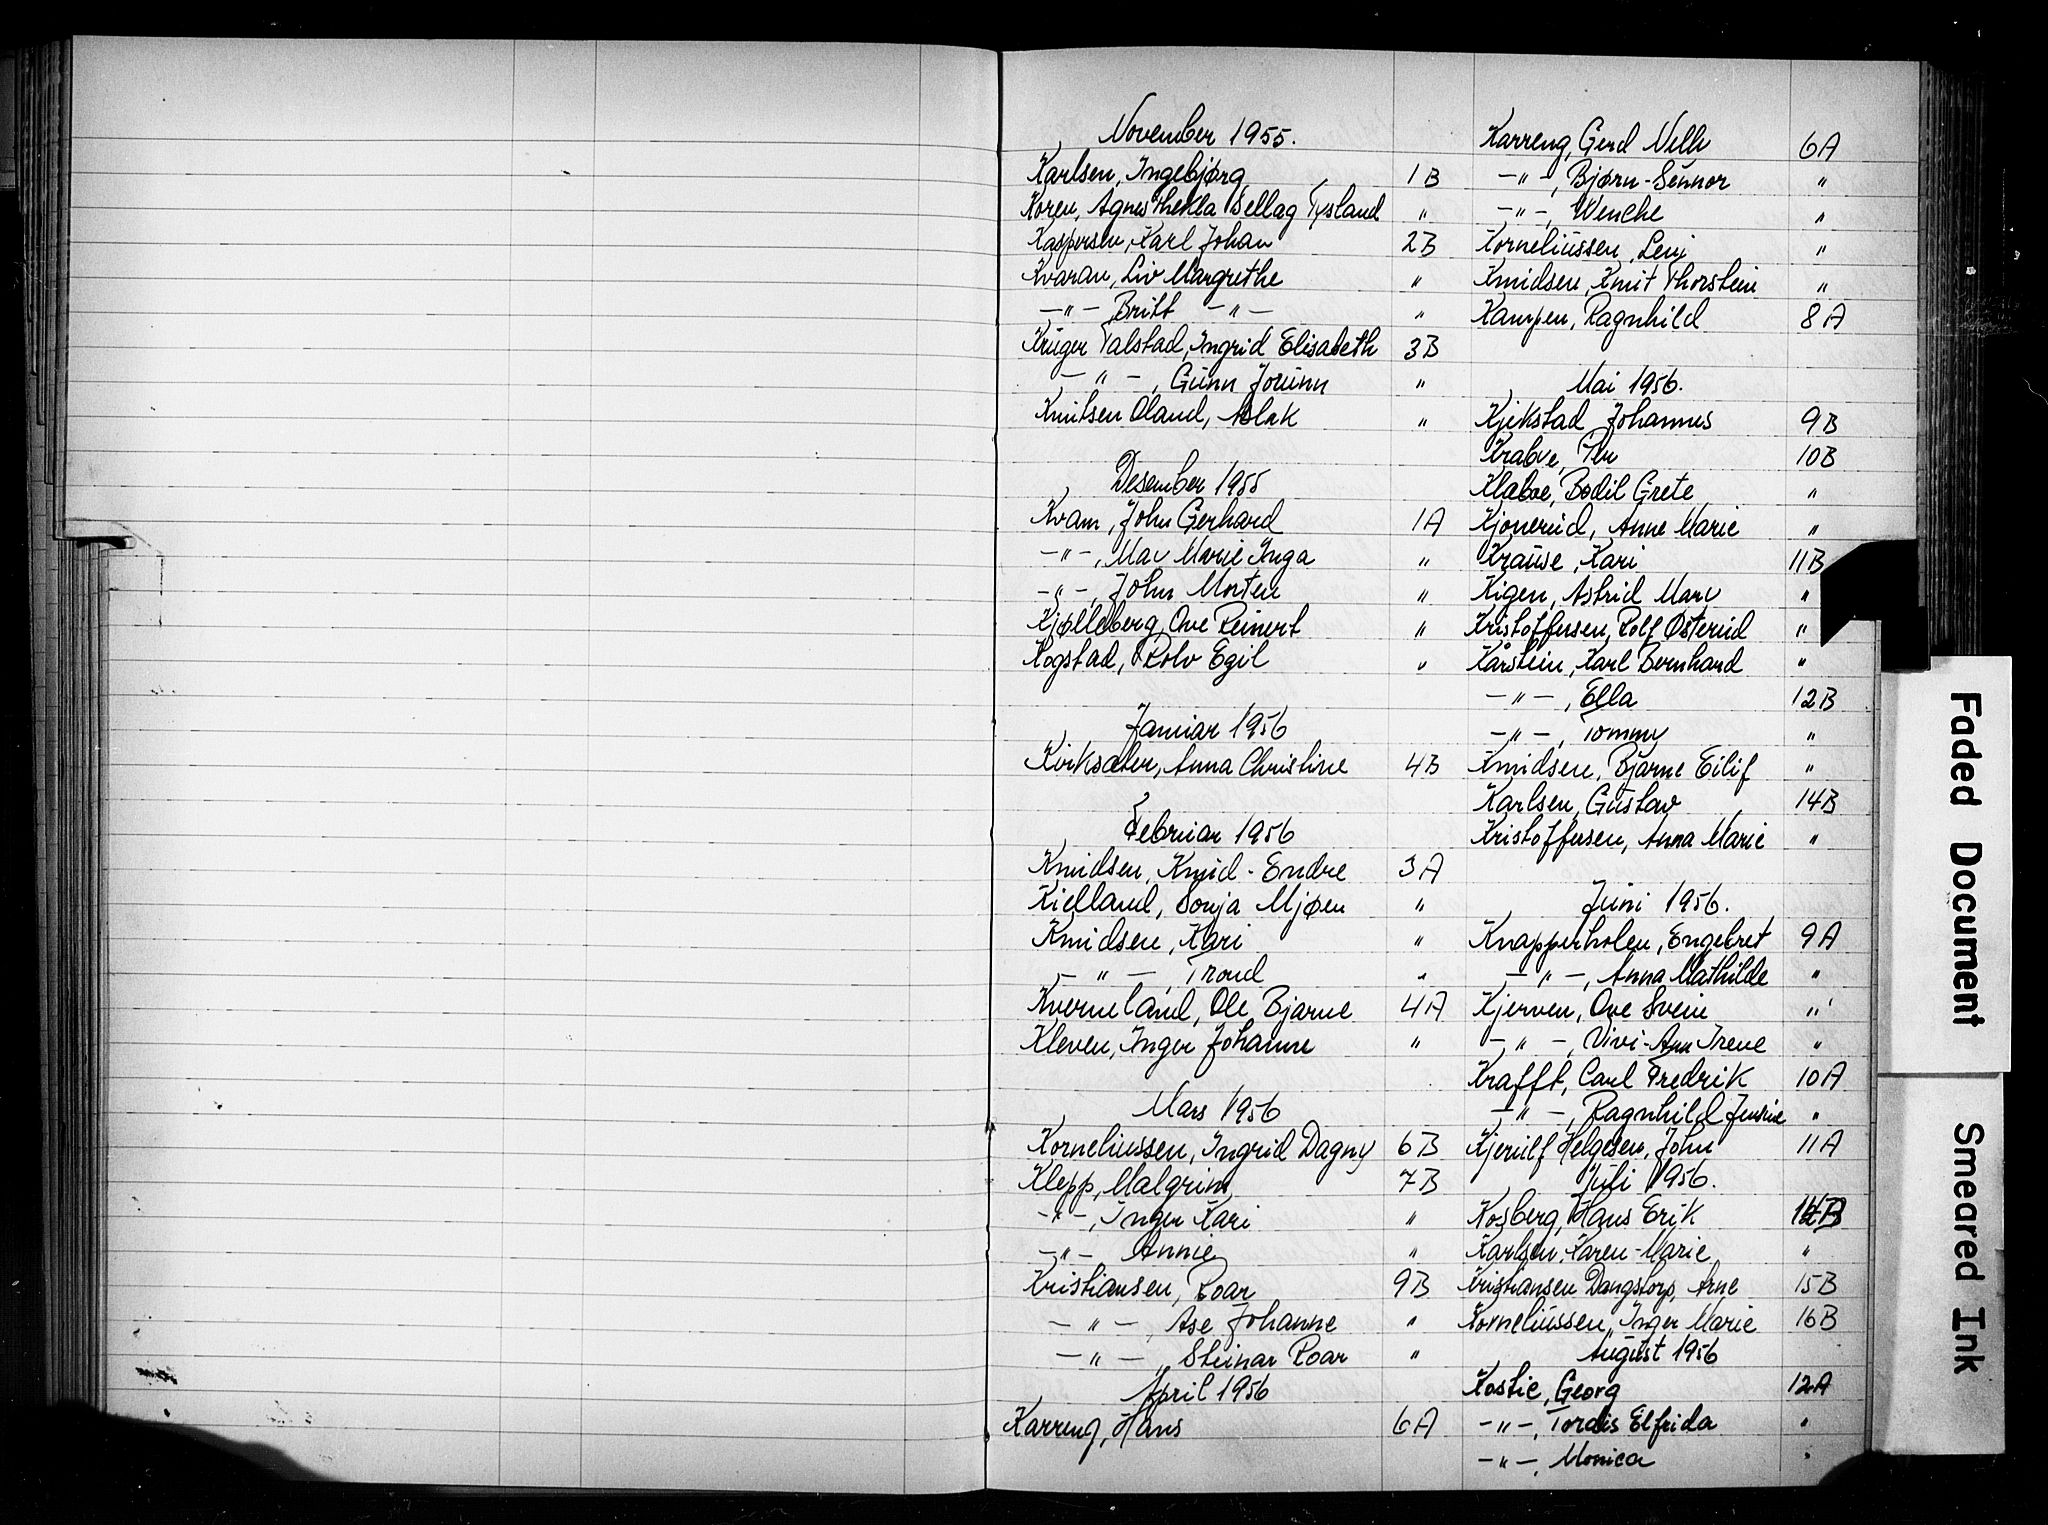 November 1955.
Karlsen, Ingebjørg 1B
Koren, Agnes Thekla Sellag Tysland "
Kaspersen, Karl Johan 2B
Kvaran, Liv Margrethe "
-"-, Britt -"- "
Krüger Valstad, Ingrid Elisabeth 3B
-"-, Gunn Jorunn "
Knutsen Oland, Aslak "
Desember 1955
Kvam, John Gerhard 1A
-"-, May Marie Inga "
-"-, John Morten "
Kjølleberg, Ove Reinert "
Kogstad, Rolv Egil "
Januar 1956
Kirksæter, Anna Christine 4B
Februar 1956
Knudsen, Knud-Endre 3A
Kielland, Sonja Mjøen "
Knudsen, Kari "
-"-, Trond "
Kverneland, Ole Bjarne 4A
Kleven, Inger Johanne "
Mars 1956
Korneliussen, Ingrid Dagny 6B
Klepp, Malgrim 7B
-"-, Inger Kari "
-"- Annie "
Kristiansen, Roar 9B
-"-, Åse Johanne "
-"-, Steinar Roar "
April 1956
Karreng, Hans 6A
Karreng, Gerd Nelly 6A
-"-, Bjørn-Sennor "
-"-, Wenche "
Korneliussen, Leni "
Knudsen, Knut Thorstein "
Kampen, Ragnhild 8A
Mai 1956.
Kjekstad Johannes 9B
Krabve, Per 10B
Klaboe, Bodil Grete "
Kjonerud, Anne Marie "
Krause, Kari 11B
Kigen, Astrid Mary "
Kristoffersen, Rolf Østerud "
Kårstein, Karl Bernhard "
-"-, Ella 12B
-"-, Tommy "
Knudsen, Bjarne Eilif "
Karlsen, Gustav 14B
Kristoffersen, Anna Marie "
Juni 1956.
Knapperholen, Engebret 9A
-"-, Anna Mathilde "
Kjerven, Ove Svein "
-"-, Vivi-Ann Irene "
Krafft, Carl Fredrik 10A
-"-, Ragnhild Jensine "
Kjerulf Helgesen, John 11A
Juli 1956.
Kosberg, Hans Erik 14B
Karlsen, Karen-Marie "
Kristiansen Dangstorp, Arne 15B
Korneliussen, Inger Marie 16B
August 1956
Kostic, Georg 12A
-"-, Tordis Elfrida "
-"-, Monica "
Faded Document
Smeared Ink